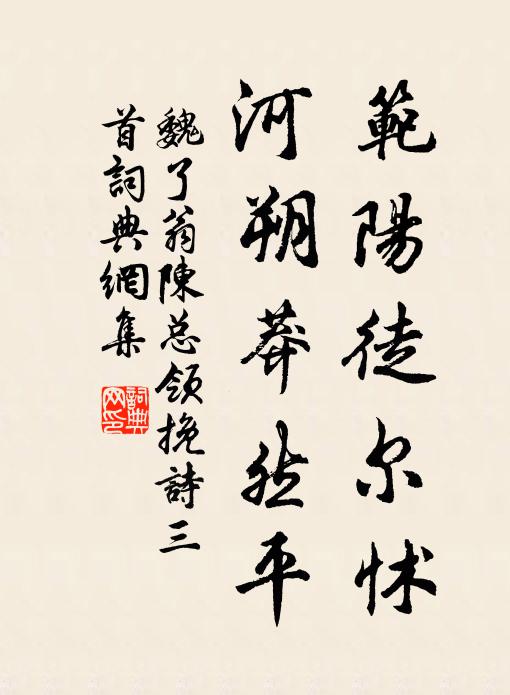 範陽徒尔怵
河朔莽然平
魏了翁陳总领挽詩三
首詞典網集
詞典
网印